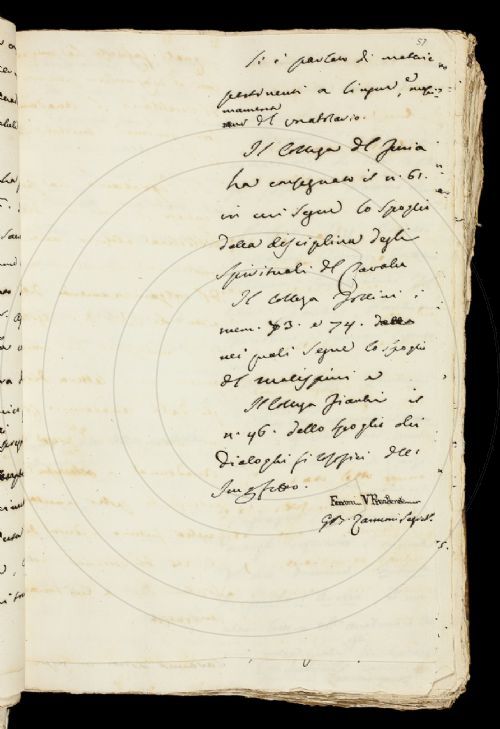 57
Si è parlato di materie
pertinenti a lingua, e
mamente
del vocabolario.
Il Collega Del Furia
ha consegnato il n. 61.
in cui segue lo spoglio
della disciplina degli
Spirituali del Cavalca
Il Collega Zollini i
num. 73. e 74.
nei quali segue lo spoglio
del Malispini e
Il Collega il
n. 46. dello spoglio dei
dialoghi di
G.B. Zannoni Seg.